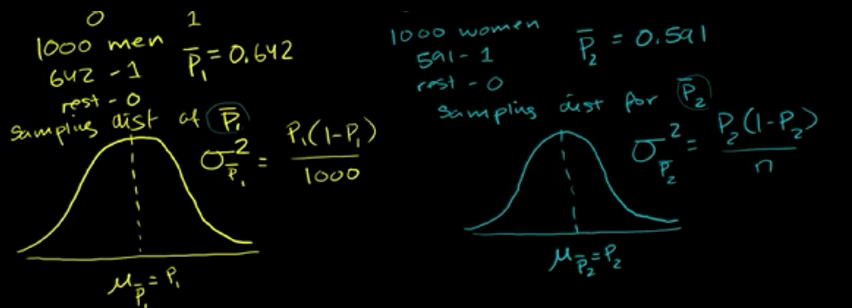 0 1
1000 men P̄₁ = 0.642
642 - 1
rest - 0
sampling dist of P̄₁
σ²_P̄₁ = P₁(1-P₁) / 1000
μ_P̄₁ = P₁
1000 women P̄₂ = 0.591
591 - 1
rest - 0
sampling dist for P̄₂
σ²_P̄₂ = P₂(1-P₂) / n
μ_P̄₂ = P₂